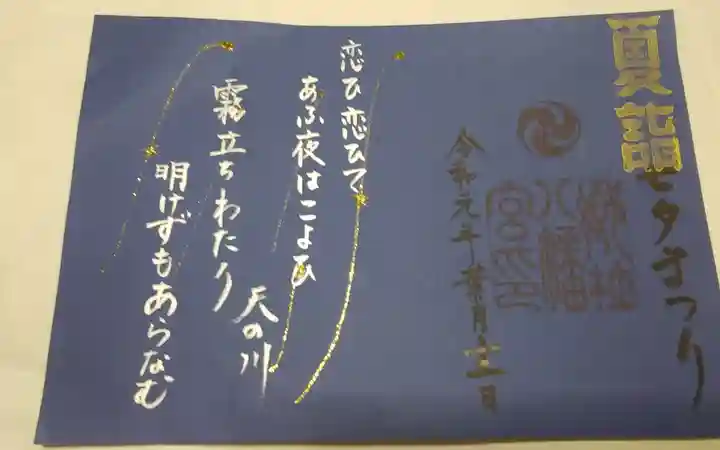 夏詣
七夕まつり
令和元年葉月十一日
恋ひ恋ひて
あふ夜はこよひ
天の川
霧立ちわたり
明けずもあらなむ